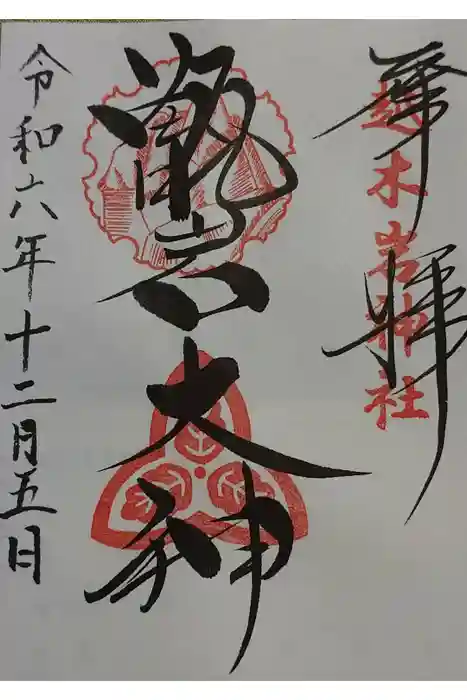 奉拝
越木岩神社
甑岩大神
令和六年十二月五日